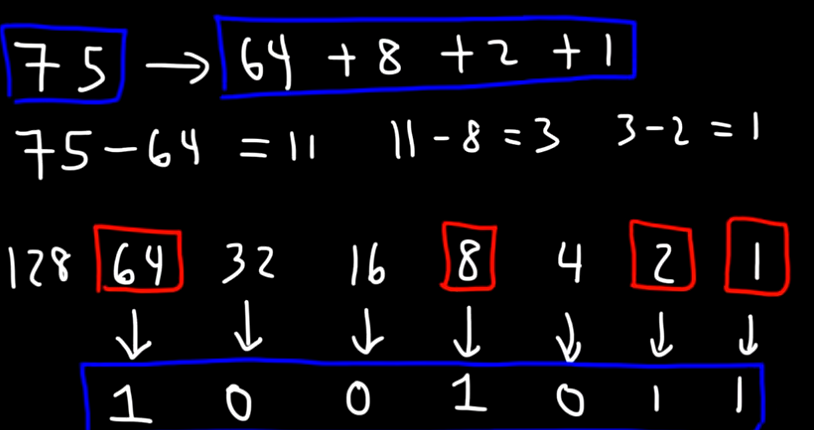 75 → 64 + 8 + 2 + 1
75 - 64 = 11 11 - 8 = 3 3 - 2 = 1
128 64 32 16 8 4 2 1
↓ ↓ ↓ ↓ ↓ ↓ ↓
1 0 0 1 0 1 1